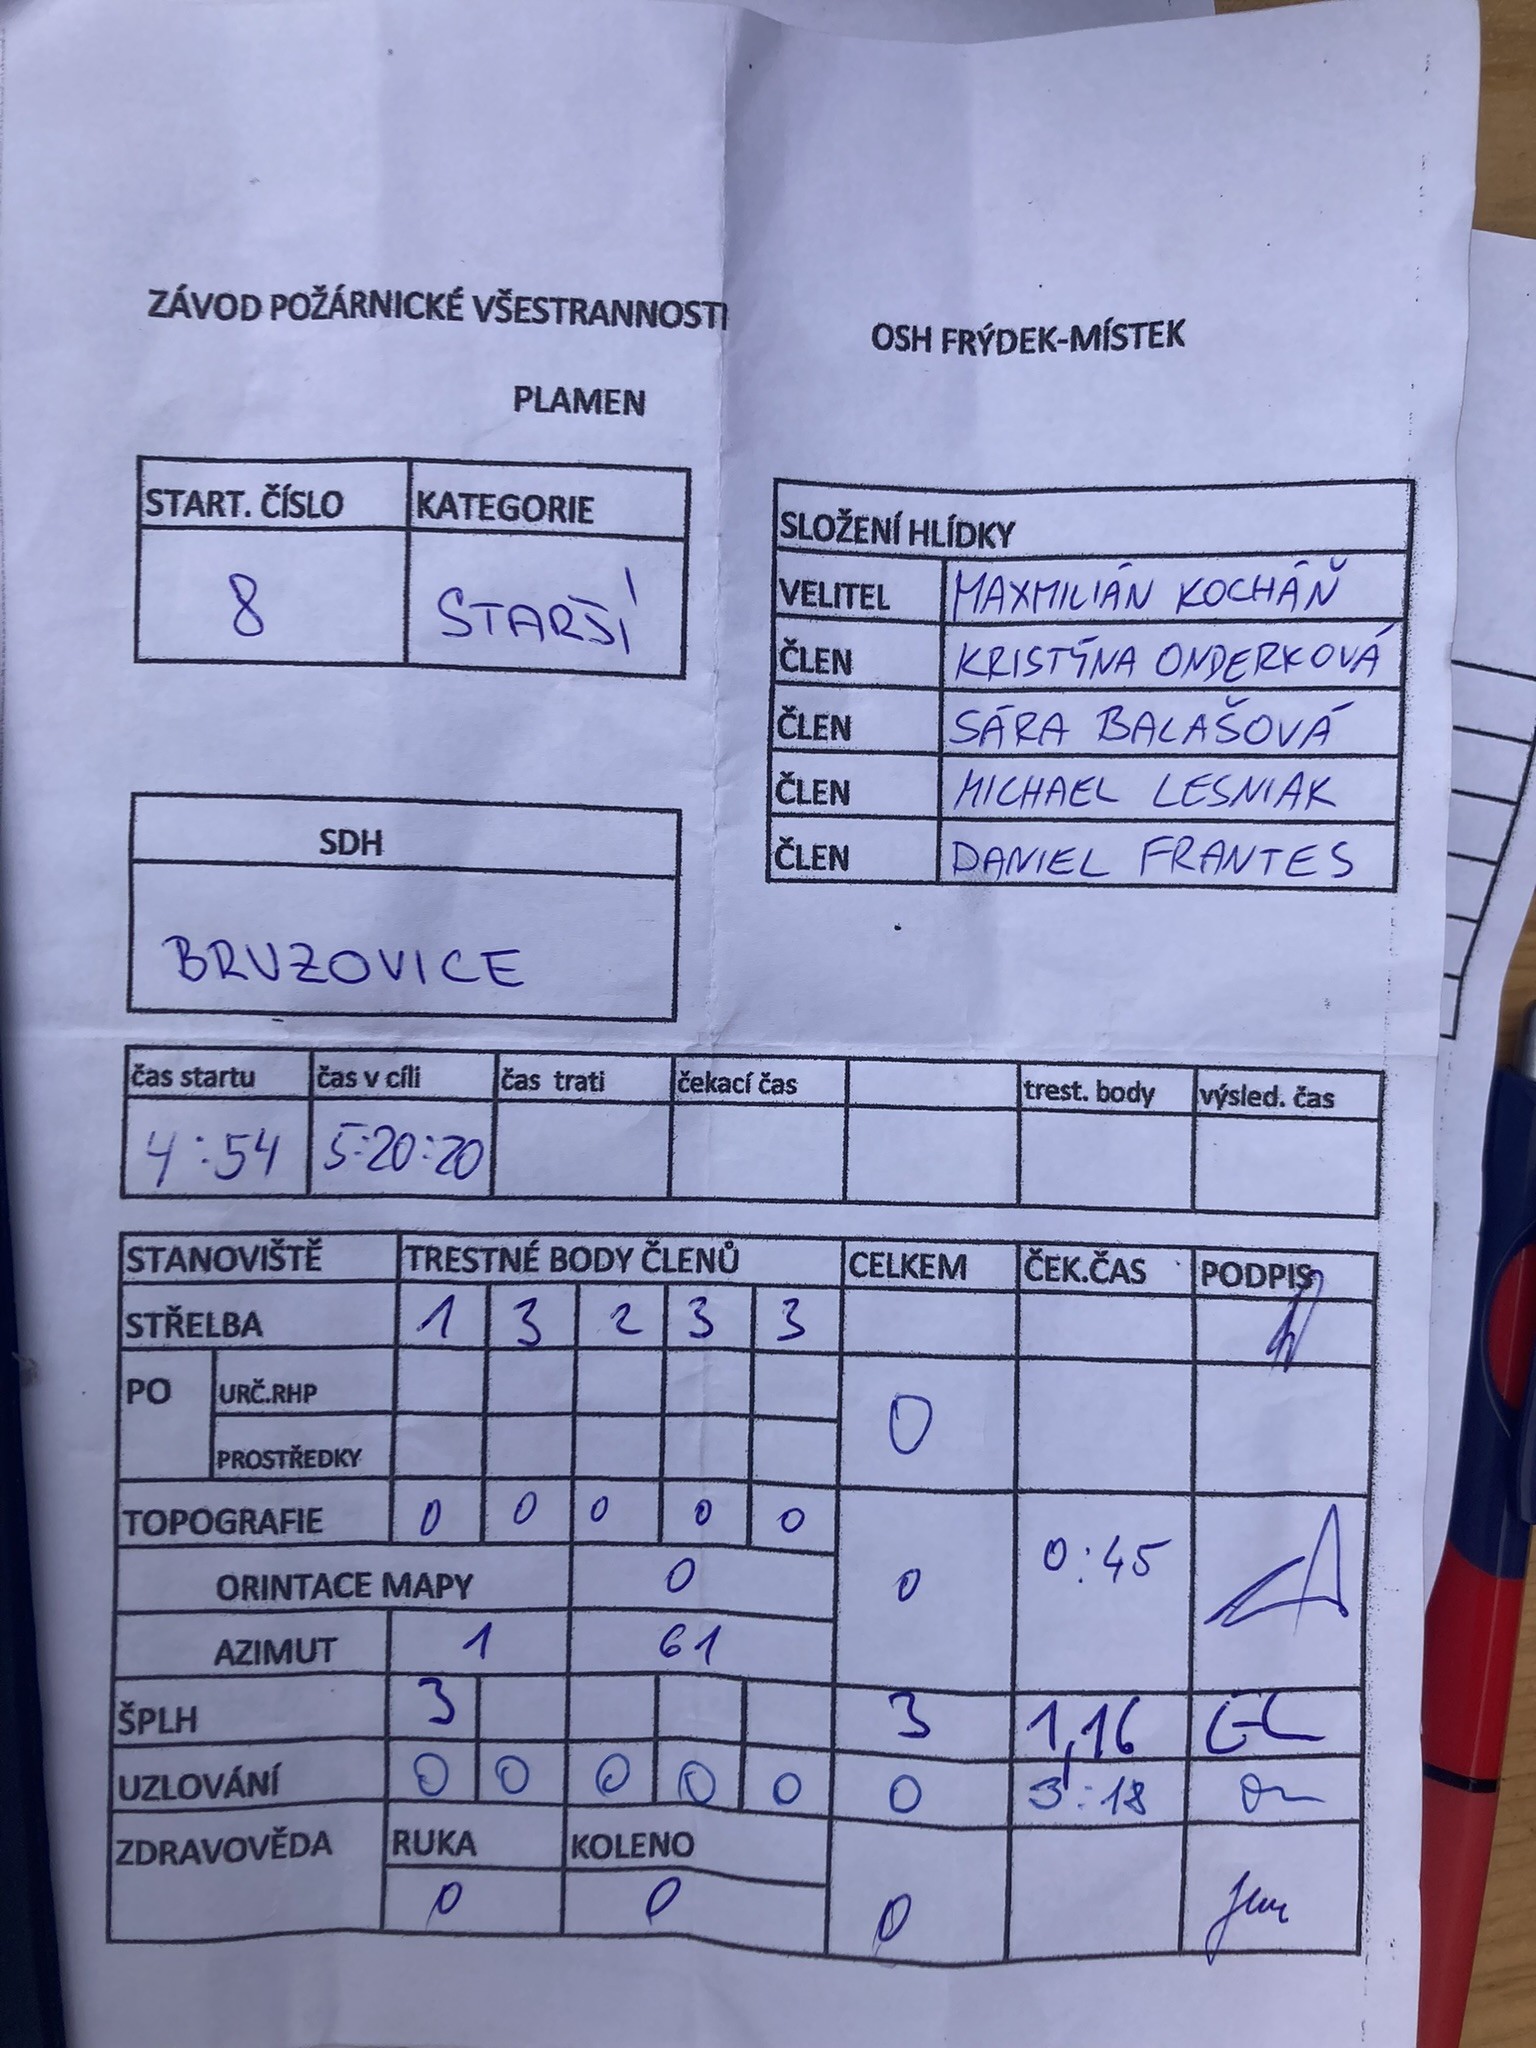 ZÁVOD POŽÁRNICKÉ VŠESTRANNOSTI
OSH FRÝDEK-MÍSTEK
PLAMEN
START. ČÍSLO KATEGORIE
8 STARŠÍ
SLOŽENÍ HLÍDKY
VELITEL MAXMILIÁN KOCHÁŇ
ČLEN KRISTÝNA ONDERKOVÁ
ČLEN SÁRA BALAŠOVÁ
ČLEN MICHAEL LESNIAK
ČLEN DANIEL FRANTES
SDH
BRUZOVICE
čas startu čas v cíli čas trati čekací čas trest. body výsled. čas
4:54 5:20:20
STANOVIŠTĚ TRESTNÉ BODY ČLENŮ CELKEM ČEK.ČAS PODPIS
STŘELBA 1 3 2 3 3
PO URČ.RHP 0
PROSTŘEDKY
TOPOGRAFIE 0 0 0 0 0
ORINTACE MAPY 0 0 0:45
AZIMUT 1 61
ŠPLH 3 3 1,16
UZLOVÁNÍ 0 0 0 0 0 0 3:18
ZDRAVOVĚDA RUKA KOLENO
0 0 0